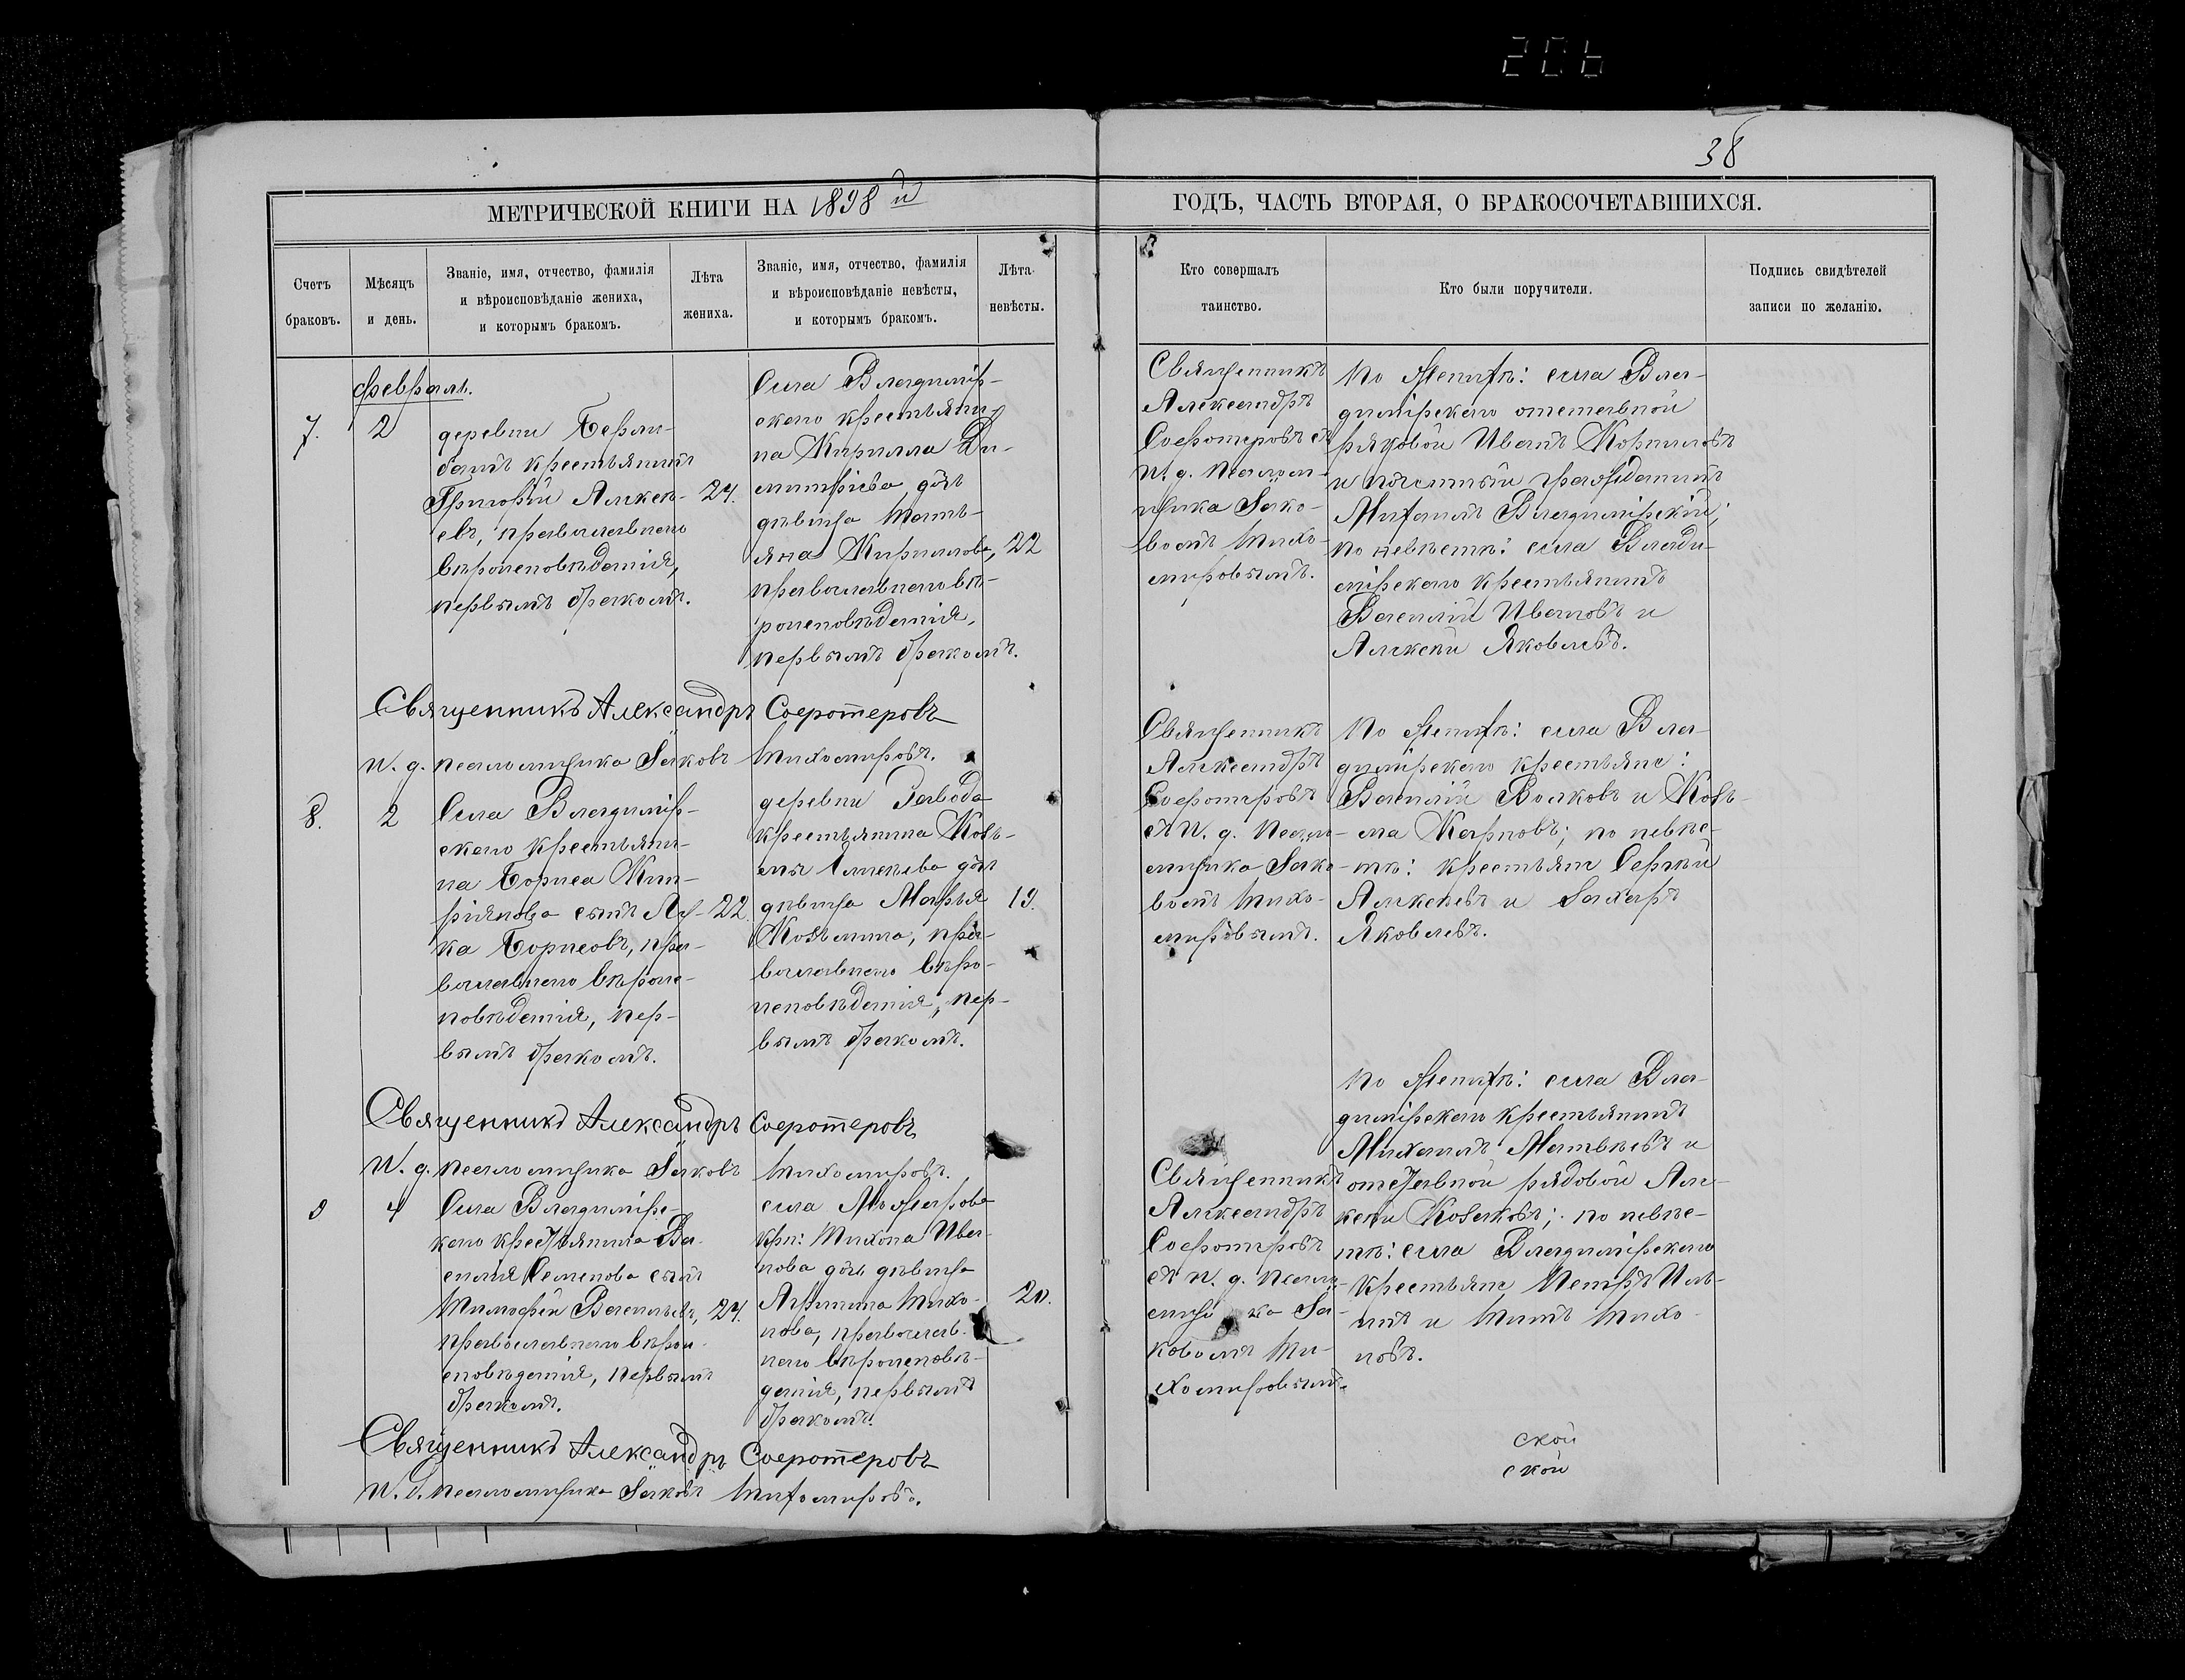 206
38
МЕТРИЧЕСКОЙ КНИГИ НА 1898й
ГОДЪ, ЧАСТЬ ВТОРАЯ, О БРАКОСОЧЕТАВШИХСЯ.
Счетъ
браковъ.
Мѣсяцъ
и день.
Званіе, имя, отчество, фамилія
и вѣроисповѣданіе жениха,
и которымъ бракомъ.
Лѣта
жениха.
Званіе, имя, отчество, фамилія
и вѣроисповѣданіе невѣсты,
и которымъ бракомъ.
Лѣта
невѣсты.
Кто совершалъ
таинство.
Кто были поручители.
Подпись свидѣтелей
записи по желанію.
февраль.
7.
2
деревни
крестьянинъ
Григорій Алексѣ-
евъ, православнаго
вѣроисповѣданія,
первымъ бракомъ.
24.
Села Владимір-
скаго крестьяни-
на Кирилла Ди-
митріева дочь
дѣвица Тать-
яна Кириллова,
православнаго вѣ-
роисповѣданія,
первымъ бракомъ.
22
Священникъ
Александръ
Соеротеровъ съ
и. д. псалом-
щика Яко-
вомъ Тихо-
мировымъ.
По женихѣ: села Вла-
димірскаго отставной
рядовой Иванъ Корниловъ
и почетный гражданинъ
Михаилъ Владимірскій;
по невѣстѣ: села Влади-
мірскаго крестьянинъ
Василій Ивановъ и
Алексѣй Яковлевъ.
Священникъ Александръ Соеротеровъ
И. д. псаломщика Яковъ Тихомировъ.
8.
2
Села Владимір-
скаго крестьяни-
на Бориса Кип-
ріянова сынъ Лу-
ка Борисовъ, пра-
вославнаго вѣроис-
повѣданія, пер-
вымъ бракомъ.
22.
деревни Завода
крестьянина Козь-
мы Алексѣева дочь
дѣвица Марья
Козьмина, пра-
вославнаго вѣро-
исповѣданія, пер-
вымъ бракомъ.
19.
Священникъ
Александръ
Соеротеровъ
съ и. д. псало-
мщика Яко-
вомъ Тихо-
мировымъ.
По женихѣ: села Вла-
димірскаго крестьяне:
Василій Волковъ и Козь-
ма Карповъ; по невѣс-
тѣ: крестьяне Сергѣй
Алексѣевъ и Захаръ
Яковлевъ.
Священникъ Александръ Соеротеровъ
И. д. псаломщика Яковъ Тихомировъ.
9
4
Села Владимірс-
каго крестьянина Ва-
силія Семенова сынъ
Тимофей Васильевъ,
православнаго вѣрои-
сповѣданія, первымъ
бракомъ.
24.
села
крн: Тихона Ива-
нова дочь дѣвица
Агрипина Тихо-
нова, православ-
наго вѣроисповѣ-
данія, первымъ
бракомъ.
20.
Священникъ
Александръ
Соеротеровъ
съ и. д. псало-
мщика Яа-
ковомъ Ти-
хомировымъ.
По женихѣ: села Вла-
димірскаго крестьянинъ
Михаилъ Матвѣевъ и
отставной рядовой Але-
ксѣй Козаковъ; по невѣс-
тѣ: села Владимірскаго
крестьяне Петръ Иль-
инъ и Титъ Тихо-
новъ.
Священникъ Александръ Соеротеровъ
И. д. псаломщика Яковъ Тихомировъ.
ской
ской